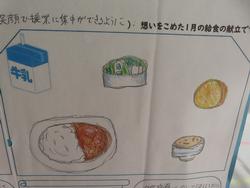 笑顔で授業に集中ができるように).
想いをこめた1月の給食の献立で
牛乳